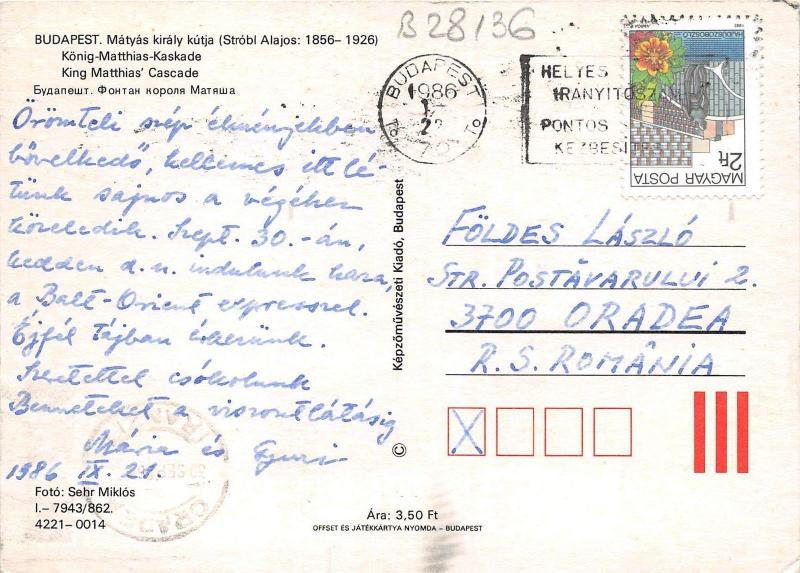 B 28136
BUDAPEST. Mátyás király kútja (Stróbl Alajos: 1856–1926)
König-Matthias-Kaskade
King Matthias' Cascade
Будапешт. Фонтан короля Матяша
Örömteli szép élményekben
bővelkedő, kellemes itt lé-
tünk sajnos a végéhez
közeledik. Szept. 30.-án,
kedden d.u. indulunk haza,
a Balt-Orient expresszel.
Éjfél tájban érkezünk.
Szeretettel csókolunk
Benneteket a viszontlátásig
Mária és Gyuri
1986 IX. 21.
Fotó: Sehr Miklós
I.– 7943/862.
4221–0014
Képzőművészeti Kiadó, Budapest
©
Ára: 3,50 Ft
OFFSET ÉS JÁTÉKKÁRTYA NYOMDA – BUDAPEST
BUDAPEST
1986
HELYES
IRÁNYÍTÓSZÁM
PONTOS
KÉZBESÍTÉS
HAJDÚSZOBOSZLÓ
2 Ft
MAGYAR POSTA
FÖLDES LÁSZLÓ
STR. POSTĂVARULUI 2.
3700 ORADEA
R.S. ROMÂNIA
X
ORADEA